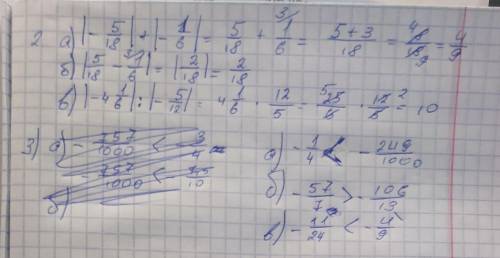 2 а) |-5/18| + |-1/6| = 5/18 + 1/6 (3/ = 5+3/18 = 8/18 = 4/9
б) |5/18 - 1/6| = |2/18| = 2/18
в) |-4 1/6| : |-5/12| = 4 1/6 · 12/5 = 25/6 · 12/5 = 10
3) а) -757/1000 < -3/4
-757/1000 <
б)
а) -1/4 < -249/1000
б) -57/7 > -106/13
в) -11/24 < -4/9